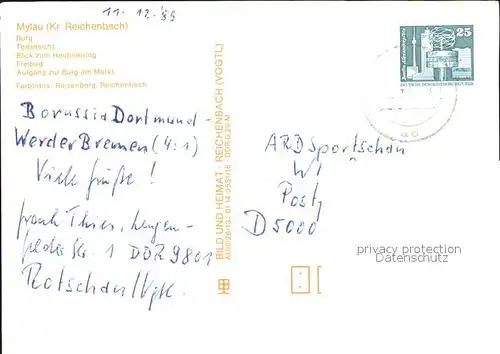 11. 12. '89
Mylau (Kr. Reichenbach)
Burg
Teilansicht
Blick zum Heubnerring
Freibad
Aufgang zur Burg am Markt
Farbfotos: Reisenberg, Reichenbach
Borussia Dortmund -
Werder Bremen (4:1)
Viele Grüße!
Frank Thies, Lengen-
felder Str. 1 DDR 9801
Rotschau/Vgtl.
BILD UND HEIMAT · REICHENBACH (VOGTL)
DDR 0,20 M
25
DEUTSCHE DEMOKRATISCHE REPUBLIK
ARD Sportschau
Post
D 5000
privacy protection
Datenschutz